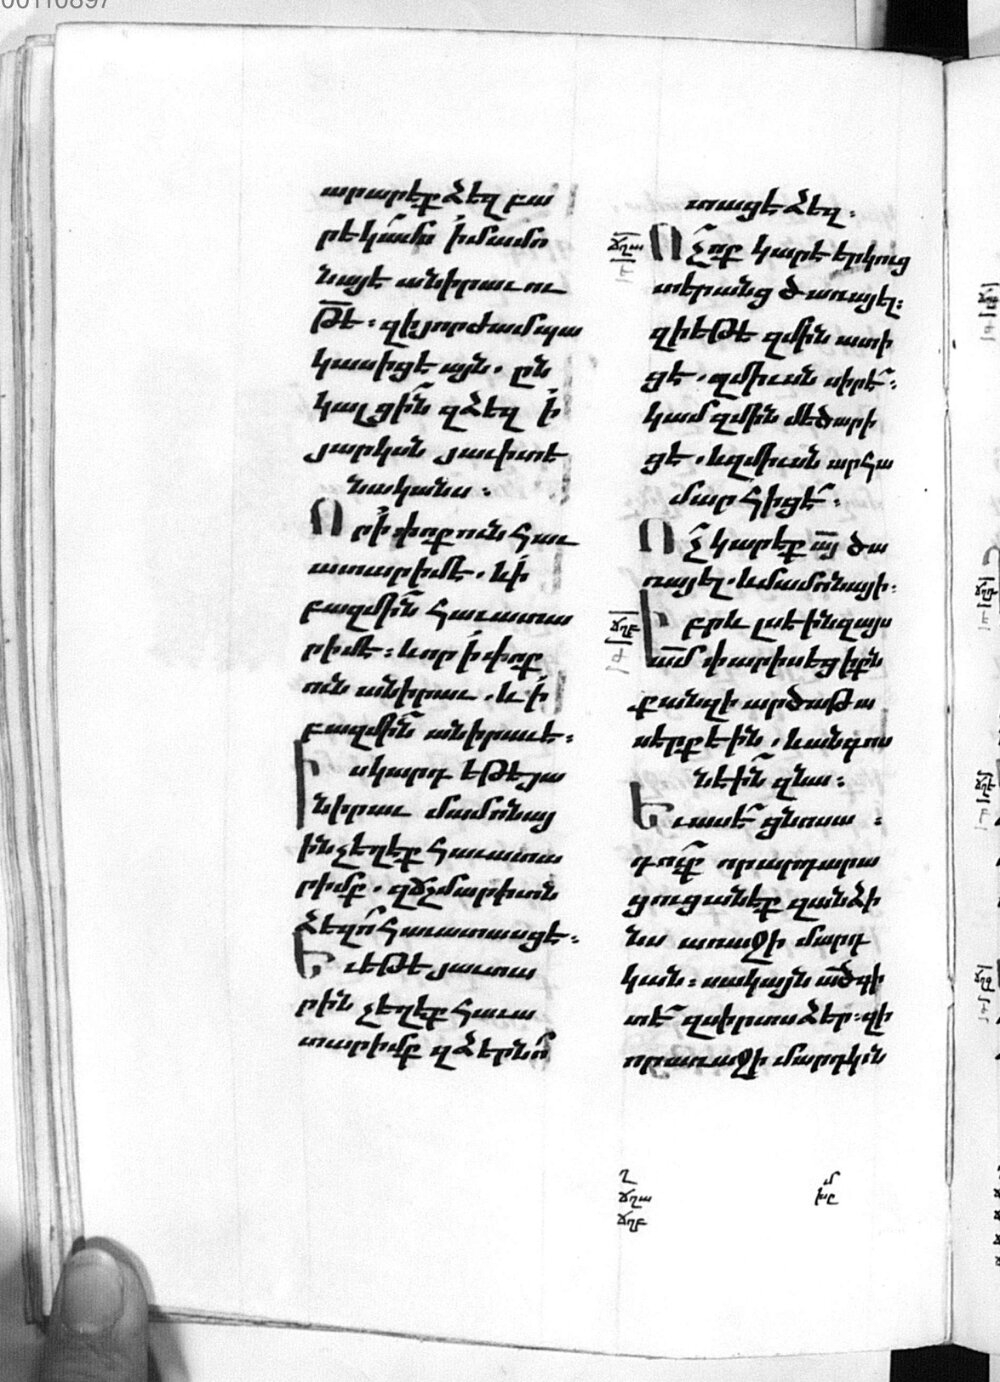 արարէք ձեզ բա
րեկամս ՛ի մամո
նայէ անիրաւու
թե · զի յորժամ պա
կասիցէ այն · ըն
կալցին զձեզ ՛ի
յարկսն յաւիտե
նականս ։
Որ ՛ի փոքուն հաւ
ատարիմ է · և ՛ի
բազմին հաւատա
րիմ է ։ և որ ՛ի փոք
ուն անիրաւ · և ՛ի
բազմին անիրաւ է ։
Իսկ արդ եթե յա
նիրաւ մամոնայ
ին չեղէք հաւատա
րիմք · զճշմարիտն
ձեզ ո հաւատասցէ ։
Եւ եթե յաւտա
րին չեղէք հաւա
տարիմք զձերն ո
տացէ ձեզ ։
ճղա
Ոչ ոք կարէ երկուց
տերանց ծառայել ։
զի եթե զմին ատի
ցէ · զմիւսն սիրէ ։
կամ զմին մեծարի
ցէ · և զմիւսն արհա
մարհիցէ ։
Ոչ կարէք այ ծա
ռայել · և մամոնայի ։
ճղբ
Իբրև լսեին զայս
ամ փարիսեցիքն
քանզի արծաթա
սերք եին · և անգոս
նեին զնա ։
Եւ ասէ ցնոսա ։
դուք որ արդարա
ցուցանէք զանձի
նս առաջի մարդ
կան ։ սակայն ած գի
տէ զսիրտս ձեր ։ զի
որ առաջի մարդկան
ղ
ճղա
ճղբ
մ
խը
00110897